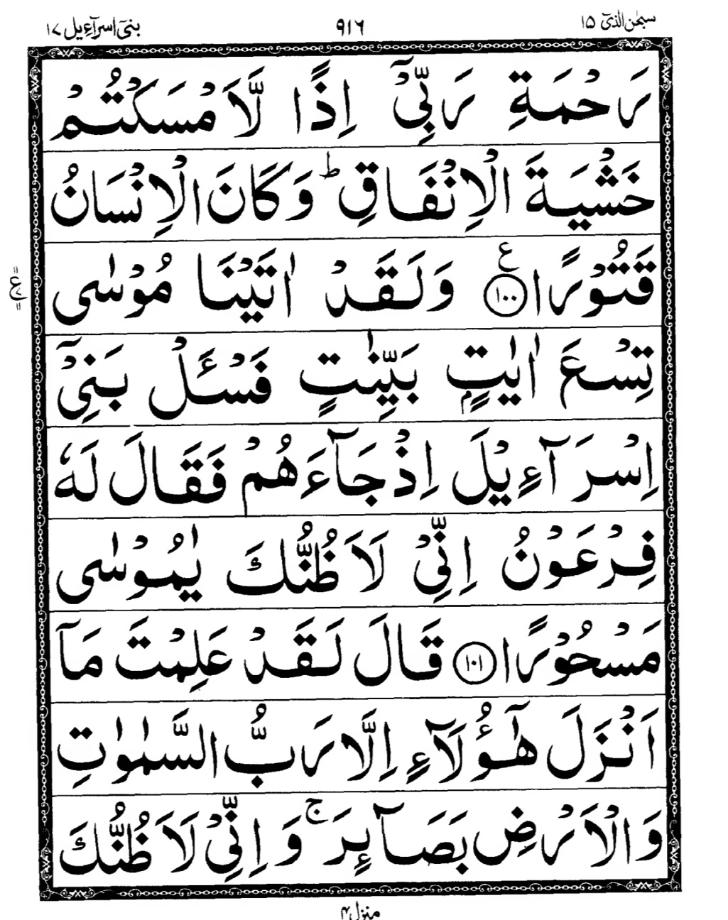 سبحٰن الذیۤ ۱۵ ۹۱۶ بنیۤ اسرآءیل ۱۷
رَحْمَةِ رَبِّیْۤ اِذًا لَّاَمْسَكْتُمْ
خَشْیَةَ الْاِنْفَاقِ ؕ وَكَانَ الْاِنْسَانُ
قَتُوْرًا ۠ ﴿۱۰۰﴾ وَلَقَدْ اٰتَیْنَا مُوْسٰی
تِسْعَ اٰیٰتٍۭ بَیِّنٰتٍ فَسْـَٔلْ بَنِیْۤ
اِسْرَآءِیْلَ اِذْ جَآءَهُمْ فَقَالَ لَهٗ
فِرْعَوْنُ اِنِّیْ لَاَظُنُّكَ یٰمُوْسٰی
مَسْحُوْرًا ﴿۱۰۱﴾ قَالَ لَقَدْ عَلِمْتَ مَاۤ
اَنْزَلَ هٰۤؤُلَآءِ اِلَّا رَبُّ السَّمٰوٰتِ
وَالْاَرْضِ بَصَآىِٕرَ ۚ وَاِنِّیْ لَاَظُنُّكَ
منزل ۴